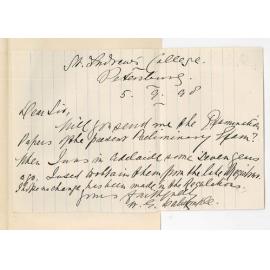 St. Andrew's College.
Petersburg.
5. 9. 98
Dear Sir,
Will you send me the Examination
Papers of the present Preliminary Exam?
When I was in Adelaide some seven years
ago, I used to obtain them from the late Registrar.
I hope no change has been made in the Regulations.
Yours faithfully
W. G.